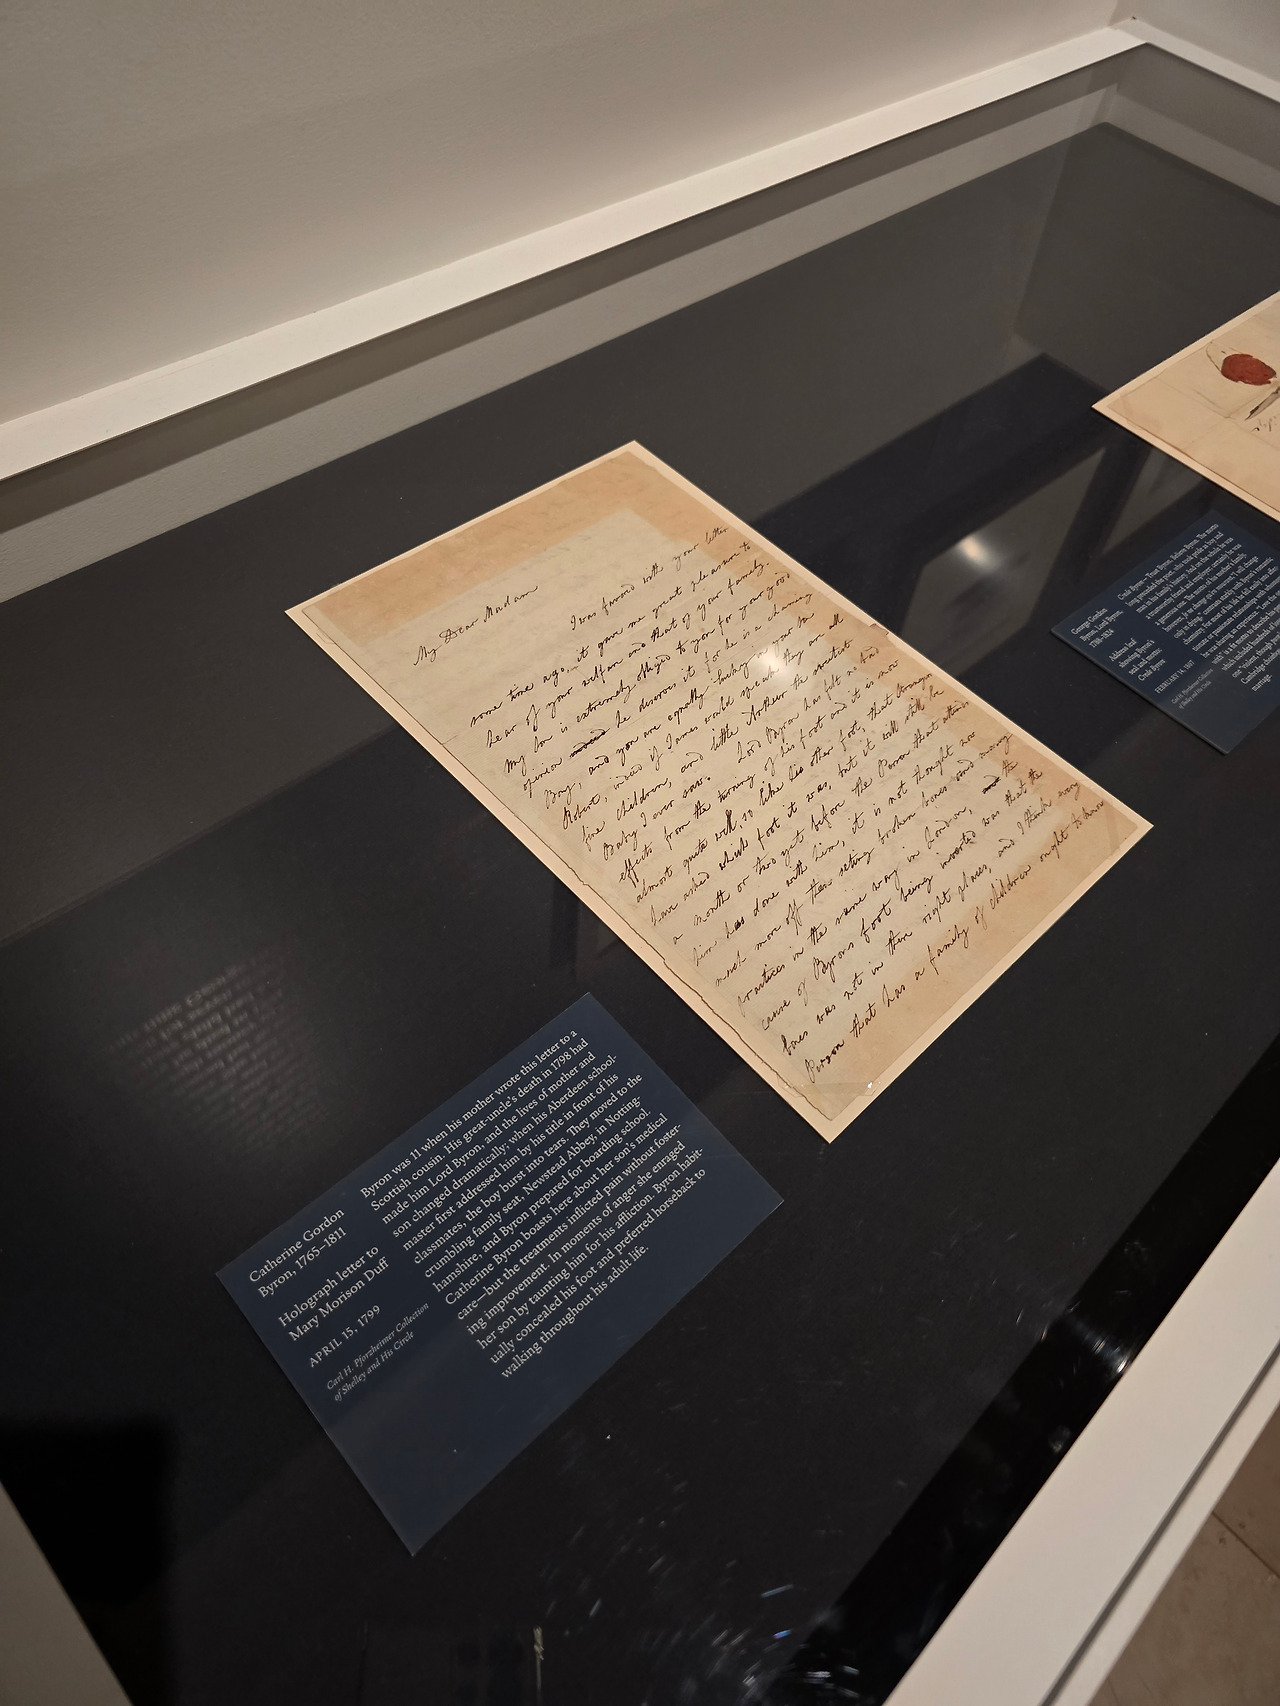 My Dear Madam
I was favord with your letter
some time ago, it gave me great pleasure to
hear of your wellfare and that of your family.
My Son is extremely obliged to you for your good
opinion he deserves it for he is a charming
Boy, and you are equally lucky in your
Robert, indeed if James would speak they are all
fine children, and little Andrew the sweetest
Baby I ever saw. Lord Byron has felt no bad
effects from the turning of his foot and it is now
almost quite well, so like his other foot, that Strangers
have asked which foot it was, but it will still be
a month or two yet before the Person that attends
him has done with him, it is not thought now
much more off then seting broken bones and many
practices in the same way in London, the
cause of Byrons foot being inverted was that the
bones was not in their right places, and I think every
Person that has a family of children ought to know
Catherine Gordon
Byron, 1765–1811
Holograph letter to
Mary Morison Duff
APRIL 15, 1799
Carl H. Pforzheimer Collection
of Shelley and His Circle
Byron was 11 when his mother wrote this letter to a
Scottish cousin. His great-uncle's death in 1798 had
made him Lord Byron, and the lives of mother and
son changed dramatically; when his Aberdeen school-
master first addressed him by his title in front of his
classmates, the boy burst into tears. They moved to the
crumbling family seat, Newstead Abbey, in Notting-
hamshire, and Byron prepared for boarding school.
Catherine Byron boasts here about her son's medical
care—but the treatments inflicted pain without foster-
ing improvement. In moments of anger she enraged
her son by taunting him for his affliction. Byron habit-
ually concealed his foot and preferred horseback to
walking throughout his adult life.
George Gordon
Byron, Lord Byron
1788–1824
Address leaf
showing Byron's
seal and motto:
Crede Byron
FEBRUARY 14, 1807
Carl H. Pforzheimer Collection
of Shelley and His Circle
Crede Byron – Trust Byron, Believe Byron. The motto